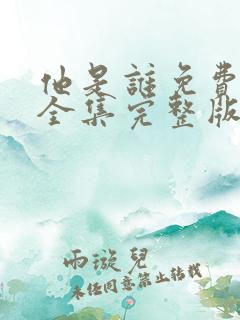 他是誰免費
全集完整版
雨漩兒
未经同意禁止转载